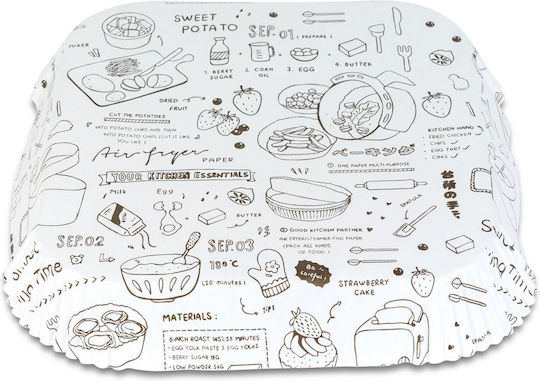 SWEET
POTATO
SEP.01 (PREPARE)
MIXER
1. BERRY
SUGAR
2. CORN
OIL
3. EGG
4. BUTTER
DRIED
FRUIT
CUT THE POTATOES
INTO POTATO CHIPS AND THEN
INTO POTATO CHIPS (CUT IT LIKE
YOU LIKE)
KITCHEN HAND
FRIED CHICKEN
CHIPS
EGG TART
CAKE
Air fryer
PAPER
ONE PAPER MULTI-PURPOSE
YOUR KITCHEN ESSENTIALS
Milk
Egg
BUTTER
SPATULA
GOOD KITCHEN PARTNER
AIR FRYER/STEAMER PAD PAPER
(PACK ALL KINDS
OF FOOD)
SEP.02
SEP.03
180°C
(20 minutes)
Be
careful!
STRAWBERRY
CAKE
TIPS
MATERIALS:
6-INCH ROAST
EGG YOLK PASTE 3 EGG YOLKS
BERRY SUGAR
LOW POWDER
SPATULA